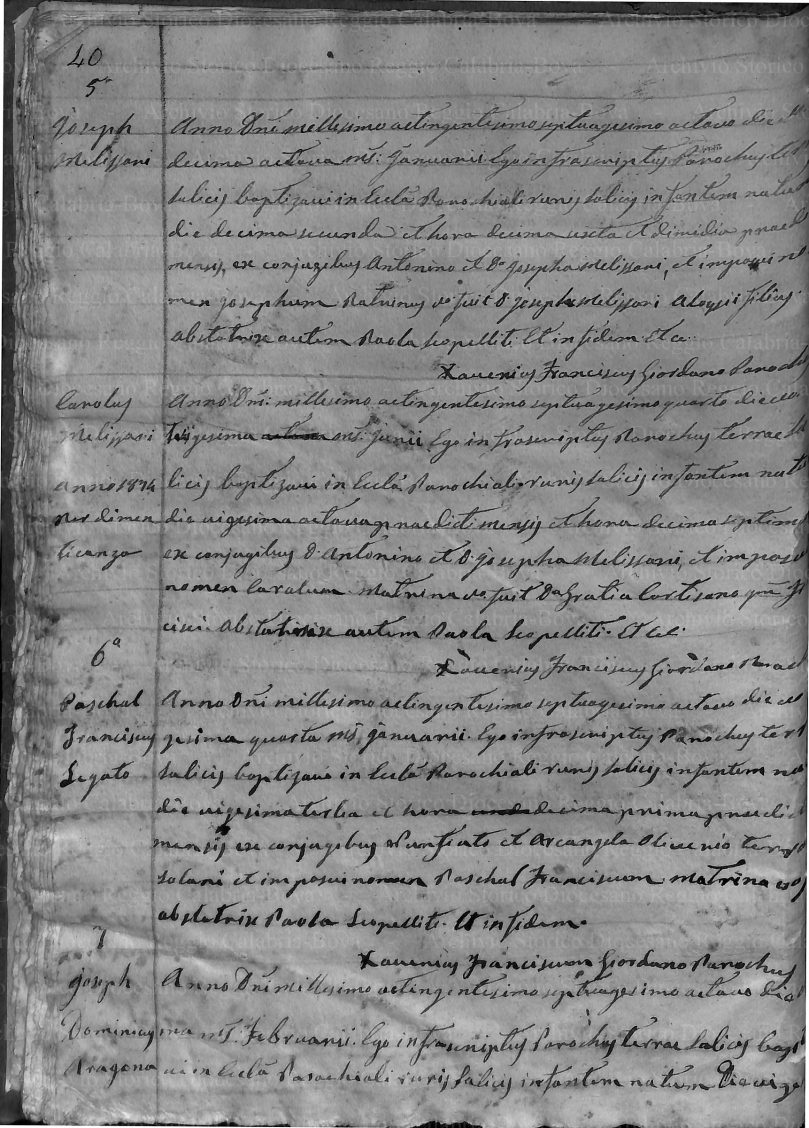 40
5a
Joseph
Melissari
Anno Dñi millesimo octingentesimo septuagesimo octavo die
decima octava mš. Januarii Ego infrascriptus Parochus
Salicis baptizavi in Eccla Parochiali ruris Salicis infantem natum
die decima secunda et hora decima sexta et dimidia praed
mensis, ex conjugibus Antonino et Da Josepha Melissari, et imposui no
men Josephum Patrinus vo fuit D Joseph Melissari Aloysii filius.
Abstatrix autem Paola Scopelliti. Et in fidem. Et ce.
Xaverius Franciscus Giordano Paroch
Carolus
Melissari
anno 1874
Per dimen
ticanza
Anno Dñi: millesimo octingentesimo septuagesimo quarto die
trigesima mš. Junii. Ego infrascriptus Parochus terrae Sa
licis baptizavi in Eccla Parochiali ruris Salicis infantem nat
die vigesima octava praedicti mensis et hora decima septim
ex conjugibus D. Antonino et D. Josepha Melissari, et imposui
nomen Carolum. Matrina vo fuit Da Gratia Cortisano qm Fr
cisci. Abstatrix autem Paola Scopelliti. Et ce.
Xaverius Franciscus Giordano Paroc
6a
Paschal
Franciscus
Legato
Anno Dñi millesimo octingentesimo septuagesimo octavo die vi
gesima quarta mš. Januarii. Ego infrascriptus Parochus terr
Salicis baptizavi in Eccla Parochiali ruris Salicis infantem na
die vigesima tertia et hora decima prima praedic
mensis ex conjugibus et Arcangela Oliverio terrae
Solani et imposui nomen Paschal Franciscum matrina vo
abstatrix Paola Scopelliti. Et in fidem.
Xaverius Franciscum Giordano Parochus
7
Joseph
Dominicus
Aragona
Anno Dñi millesimo octingentesimo septuagesimo octavo die
ma mš. Februarii. Ego infrascriptus Parochus terrae Salicis bapt
vi in Eccla Parochiali ruris Salicis infantem natum Die vige